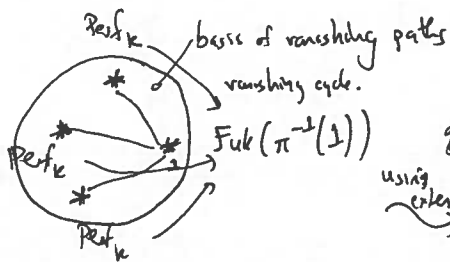 Perf_k
basis of vanishing paths
vanishing cycle.
Fuk(π^{-1}(1))
Perf_k
1
using
Perf_k